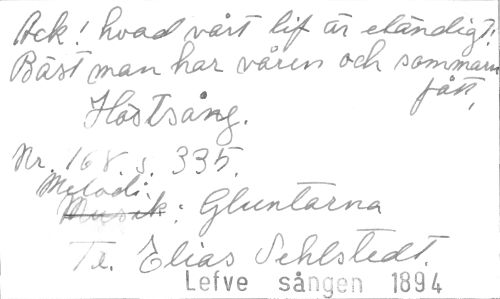 Ack! hvad vårt lif är eländigt!
Bäst man har våren och sommarn
fått,
Höstsång.
Nr. 168. s. 335.
Melodi:
Musik: Gluntarna
Te. Elias Sehlstedt.
Lefve sången 1894